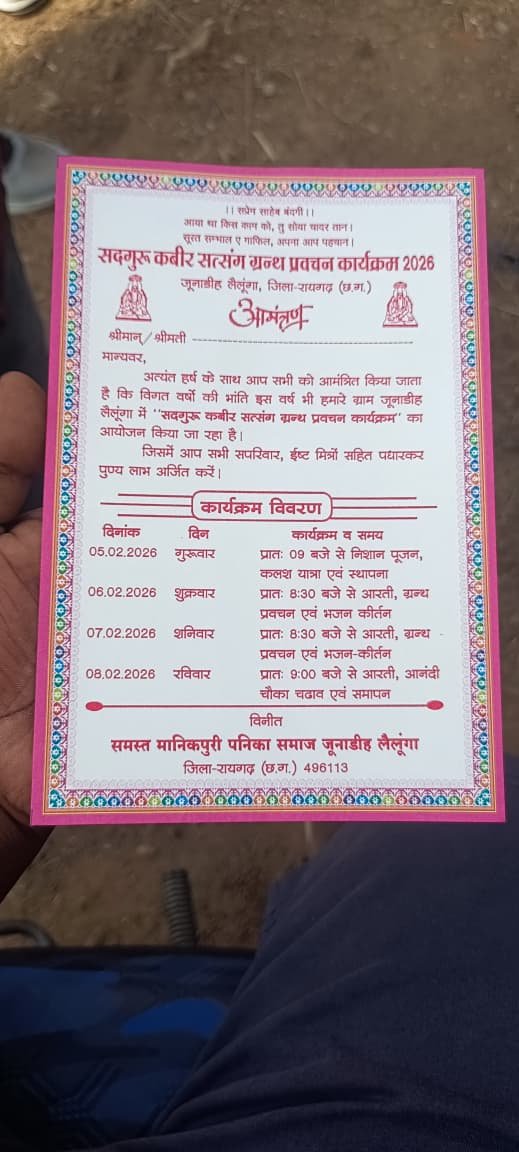 ।। सप्रेम साहेब बंदगी।।
आया था किस काम को, तु सोया चादर तान।
सूरत सम्भाल ए गाफिल, अपना आप पहचान।
सद्गुरू कबीर सत्संग ग्रन्थ प्रवचन कार्यक्रम 2026
जूनाडीह लैलूंगा, जिला-रायगढ़ (छ.ग.)
आमंत्रण
श्रीमान्/श्रीमती
मान्यवर,
अत्यंत हर्ष के साथ आप सभी को आमंत्रित किया जाता
है कि विगत वर्षो की भांति इस वर्ष भी हमारे ग्राम जूनाडीह
लैलूंगा में "सद्गुरू कबीर सत्संग ग्रन्थ प्रवचन कार्यक्रम" का
आयोजन किया जा रहा है।
जिसमें आप सभी सपरिवार, ईष्ट मित्रों सहित पधारकर
पुण्य लाभ अर्जित करें।
कार्यक्रम विवरण
दिनांक दिन कार्यक्रम व समय
05.02.2026 गुरूवार प्रातः 09 बजे से निशान पूजन,
कलश यात्रा एवं स्थापना
06.02.2026 शुक्रवार प्रातः 8:30 बजे से आरती, ग्रन्थ
प्रवचन एवं भजन कीर्तन
07.02.2026 शनिवार प्रातः 8:30 बजे से आरती, ग्रन्थ
प्रवचन एवं भजन-कीर्तन
08.02.2026 रविवार प्रातः 9:00 बजे से आरती, आनंदी
चौका चढाव एवं समापन
विनीत
समस्त मानिकपुरी पनिका समाज जूनाडीह लैलूंगा
जिला-रायगढ़ (छ.ग.) 496113